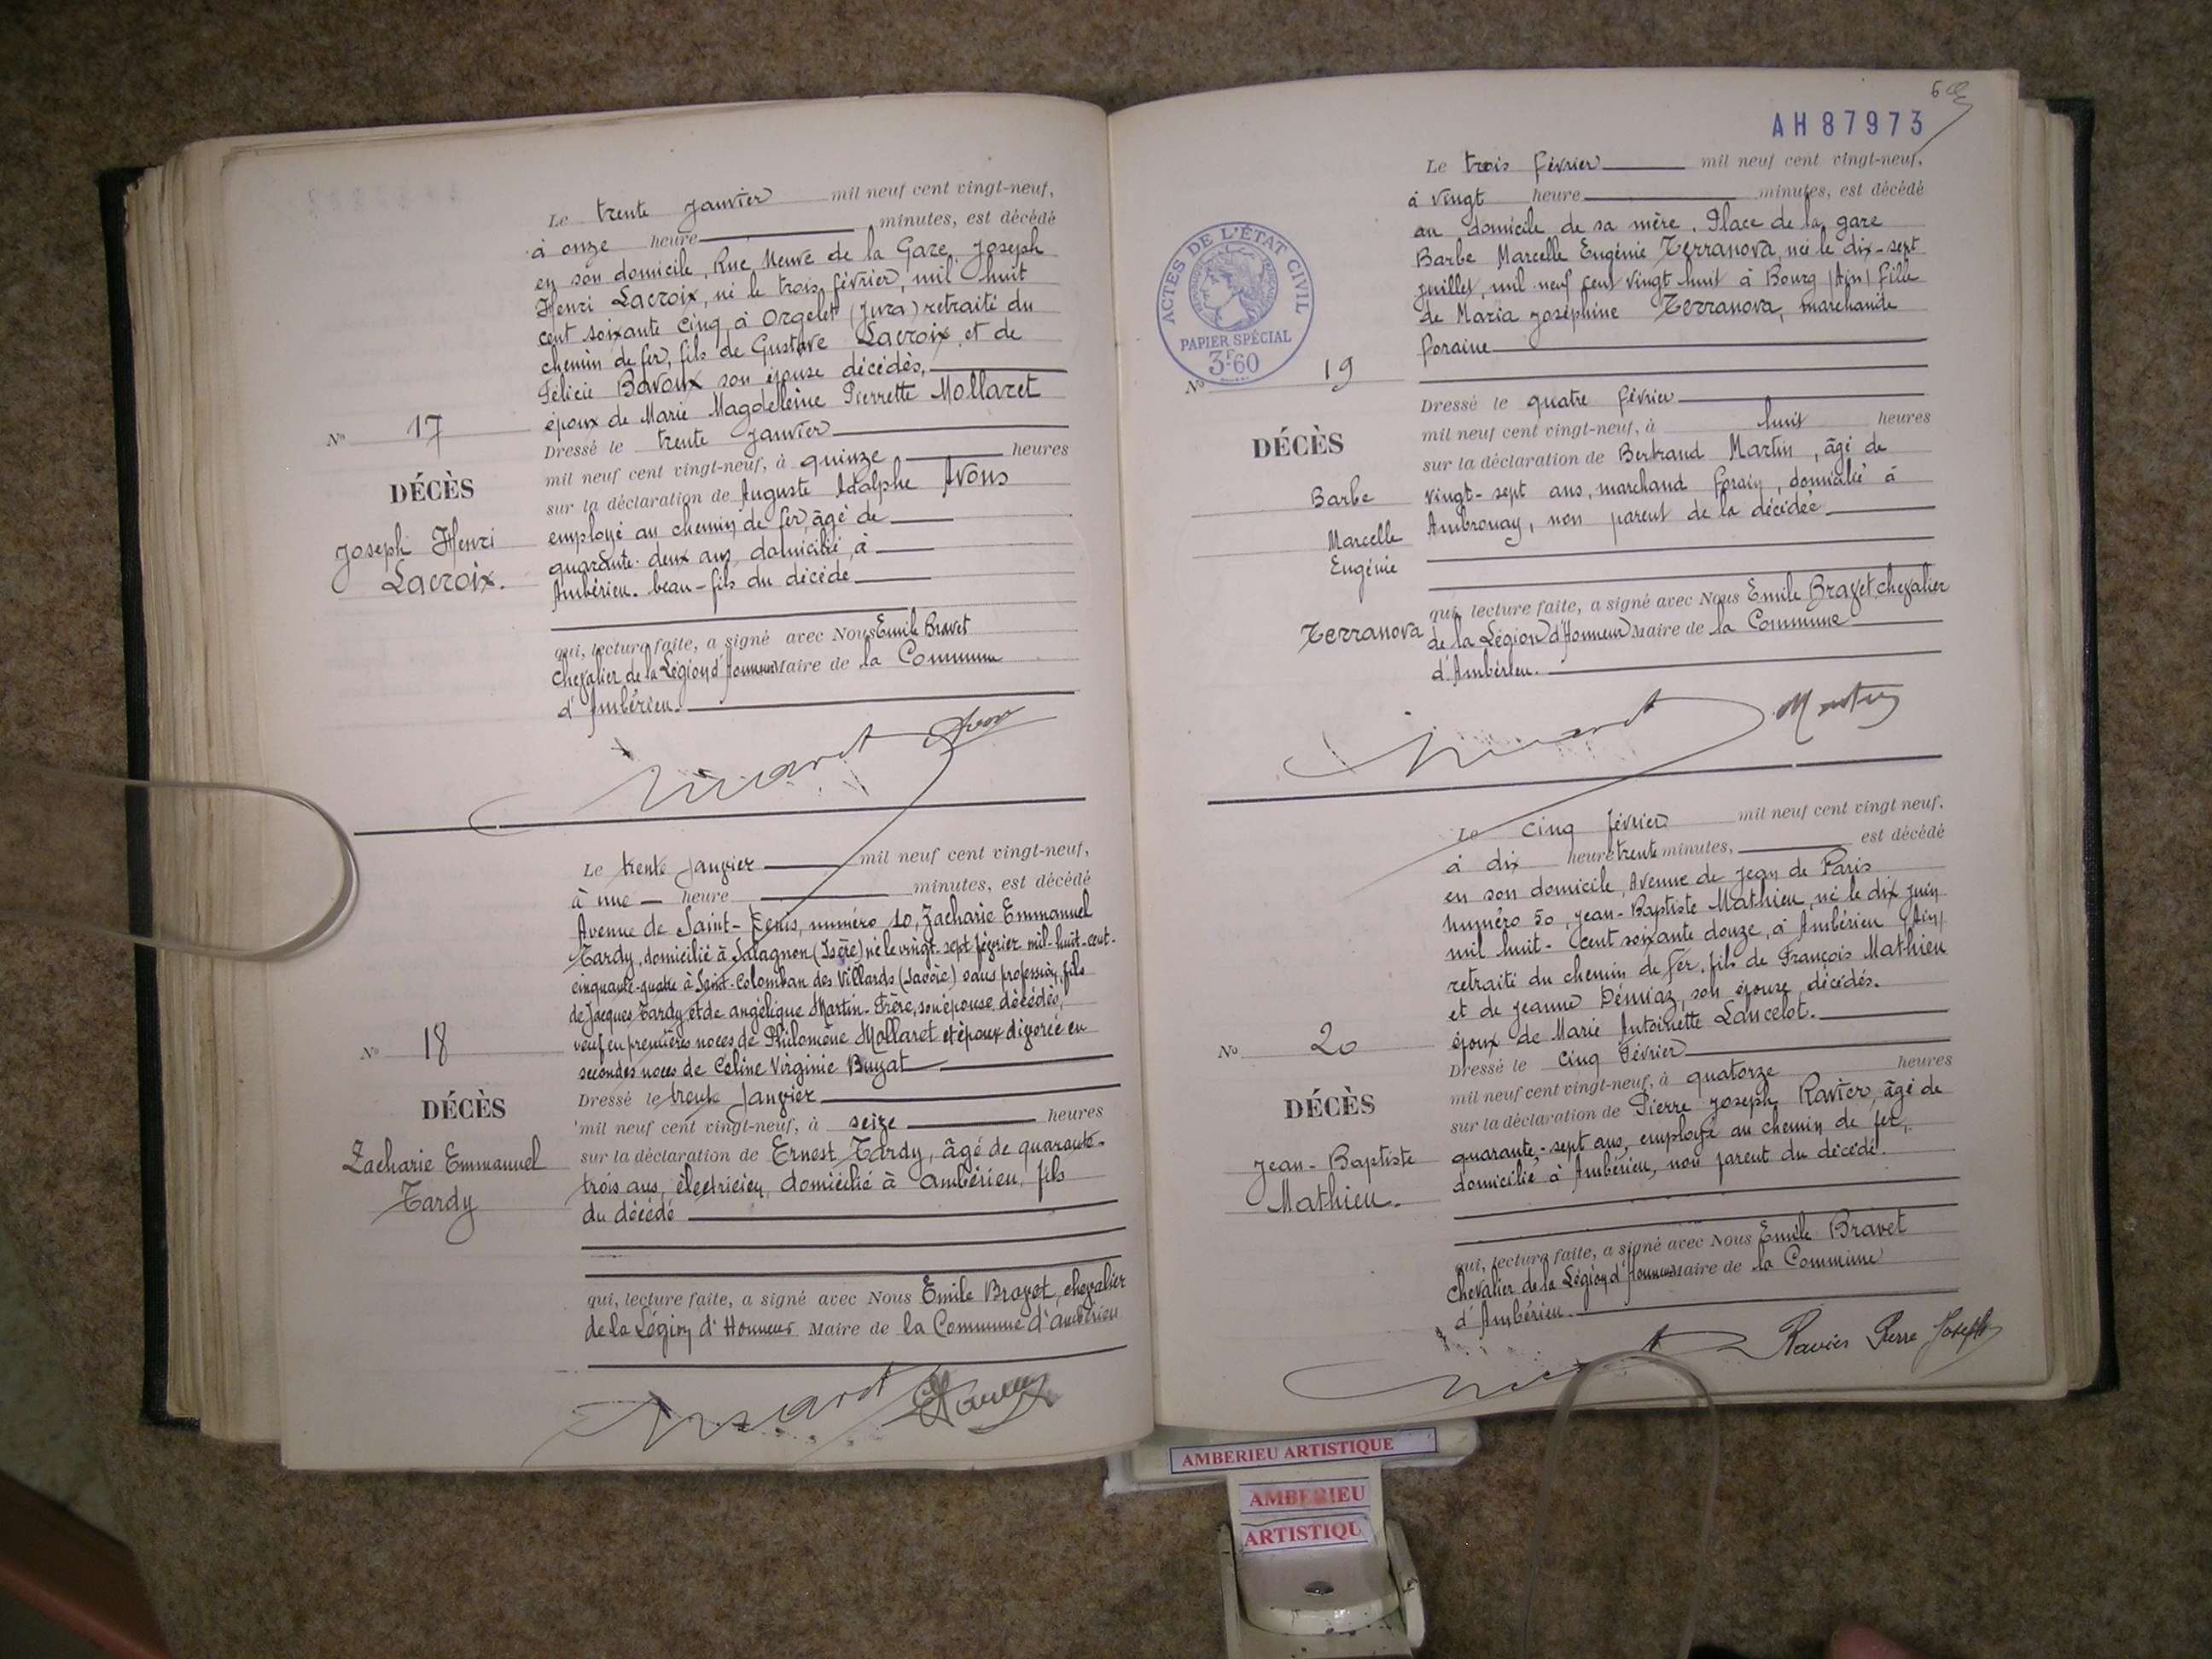 Le trente janvier mil neuf cent vingt-neuf,
à onze heure minutes, est décédé
en son domicile, Rue Neuve de la Gare, Joseph
Henri Lacroix, né le trois février, mil huit
cent soixante cinq, à Orgelet (Jura) retraité du
chemin de fer, fils de Gustave Lacroix, et de
Félicie Bavoux son épouse décédés,
époux de Marie Magdeleine Pierrette Mollaret
N° 17
DÉCÈS
Joseph Henri
Lacroix.
Dressé le trente janvier
mil neuf cent vingt-neuf, à quinze heures
sur la déclaration de Auguste Adolphe Avons
employé au chemin de fer, âgé de
quarante-deux ans, domicilié, à
Ambérieu. beau-fils du décédé
qui, lecture faite, a signé avec Nous Emile Bravet
chevalier de la Légion d'Honneur Maire de la Commune
d'Ambérieu.
Le trente janvier mil neuf cent vingt-neuf,
à une heure minutes, est décédé
Avenue de Saint-Denis, numéro 10, Zacharie Emmanuel
Tardy, domicilié à Salagnon (Isère) né le vingt-sept février mil-huit-cent-
cinquante-quatre à Saint-Colomban des Villards (Savoie) sans profession, fils
de Jacques Tardy et de angélique Martin-Frère, son épouse, décédés,
veuf en premières noces de Philomène Mollaret et époux divorcé en
secondes noces de Céline Virginie Buyat
N° 18
DÉCÈS
Zacharie Emmanuel
Tardy
Dressé le trente Janvier
mil neuf cent vingt-neuf, à seize heures
sur la déclaration de Ernest Tardy, âgé de quarante-
trois ans, électricien, domicilié à Ambérieu, fils
du décédé
qui, lecture faite, a signé avec Nous Emile Bravet, chevalier
de la Légion d'Honneur Maire de la Commune d'Ambérieu
6
AH87973
Le trois février mil neuf cent vingt-neuf,
à vingt heure minutes, est décédé
au domicile de sa mère, Place de la gare
Barbe Marcelle Eugénie Terranova, née le dix-sept
juillet, mil neuf cent vingt huit à Bourg (Ain) fille
de Maria Joséphine Terranova, marchande
foraine
ACTES DE L'ÉTAT CIVIL
PAPIER SPÉCIAL
3F60
N° 19
DÉCÈS
Barbe
Marcelle
Eugénie
Terranova
Dressé le quatre février
mil neuf cent vingt-neuf, à huit heures
sur la déclaration de Bertrand Martin, âgé de
vingt-sept ans, marchand forain, domicilié à
Ambronay, non parent de la décédée
qui, lecture faite, a signé avec Nous Emile Bravet, chevalier
de la Légion d'Honneur Maire de la Commune
d'Ambérieu.
Martin
Le cinq février mil neuf cent vingt neuf,
à dix heure trente minutes, est décédé
en son domicile, Avenue de Jean de Paris
numéro 50, Jean-Baptiste Mathieu, né le dix juin
mil huit-cent soixante douze, à Ambérieu (Ain)
retraité du chemin de fer, fils de François Mathieu
et de Jeanne Démiaz, son épouse, décédés.
époux de Marie Antoinette Lancelot.
N° 20
DÉCÈS
Jean-Baptiste
Mathieu.
Dressé le cinq Février
mil neuf cent vingt-neuf, à quatorze heures
sur la déclaration de Pierre Joseph Ravier, âgé de
quarante-sept ans, employé au chemin de fer,
domicilié à Ambérieu, non parent du décédé.
qui, lecture faite, a signé avec Nous Emile Bravet
chevalier de la Légion d'Honneur Maire de la Commune
d'Ambérieu.
Ravier Pierre Joseph
AMBERIEU ARTISTIQUE
AMBERIEU
ARTISTIQU